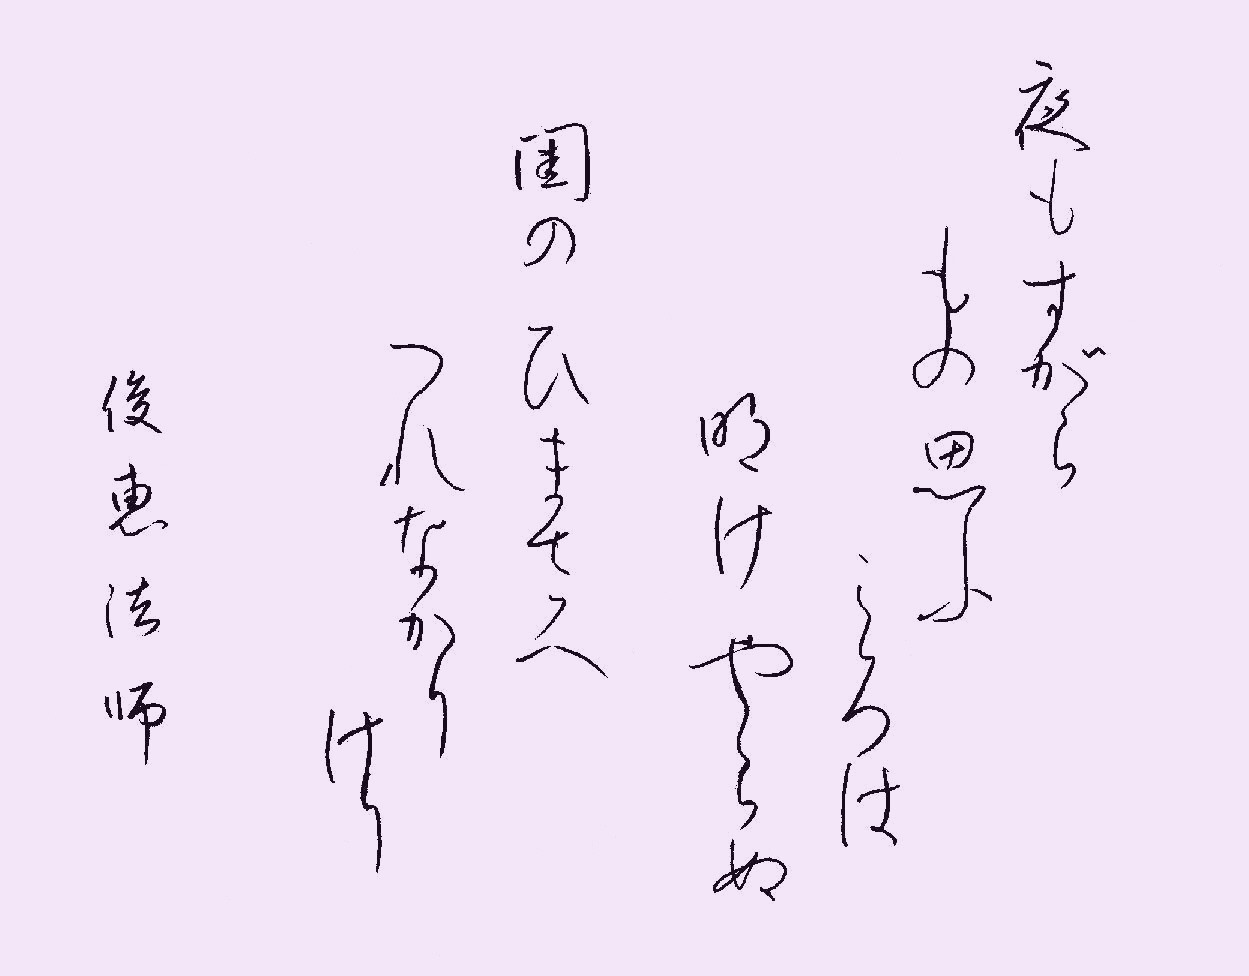 夜もすがら
もの思ふ
ころは
明けやらぬ
閨のひまさへ
つれなかり
けり
俊恵法師